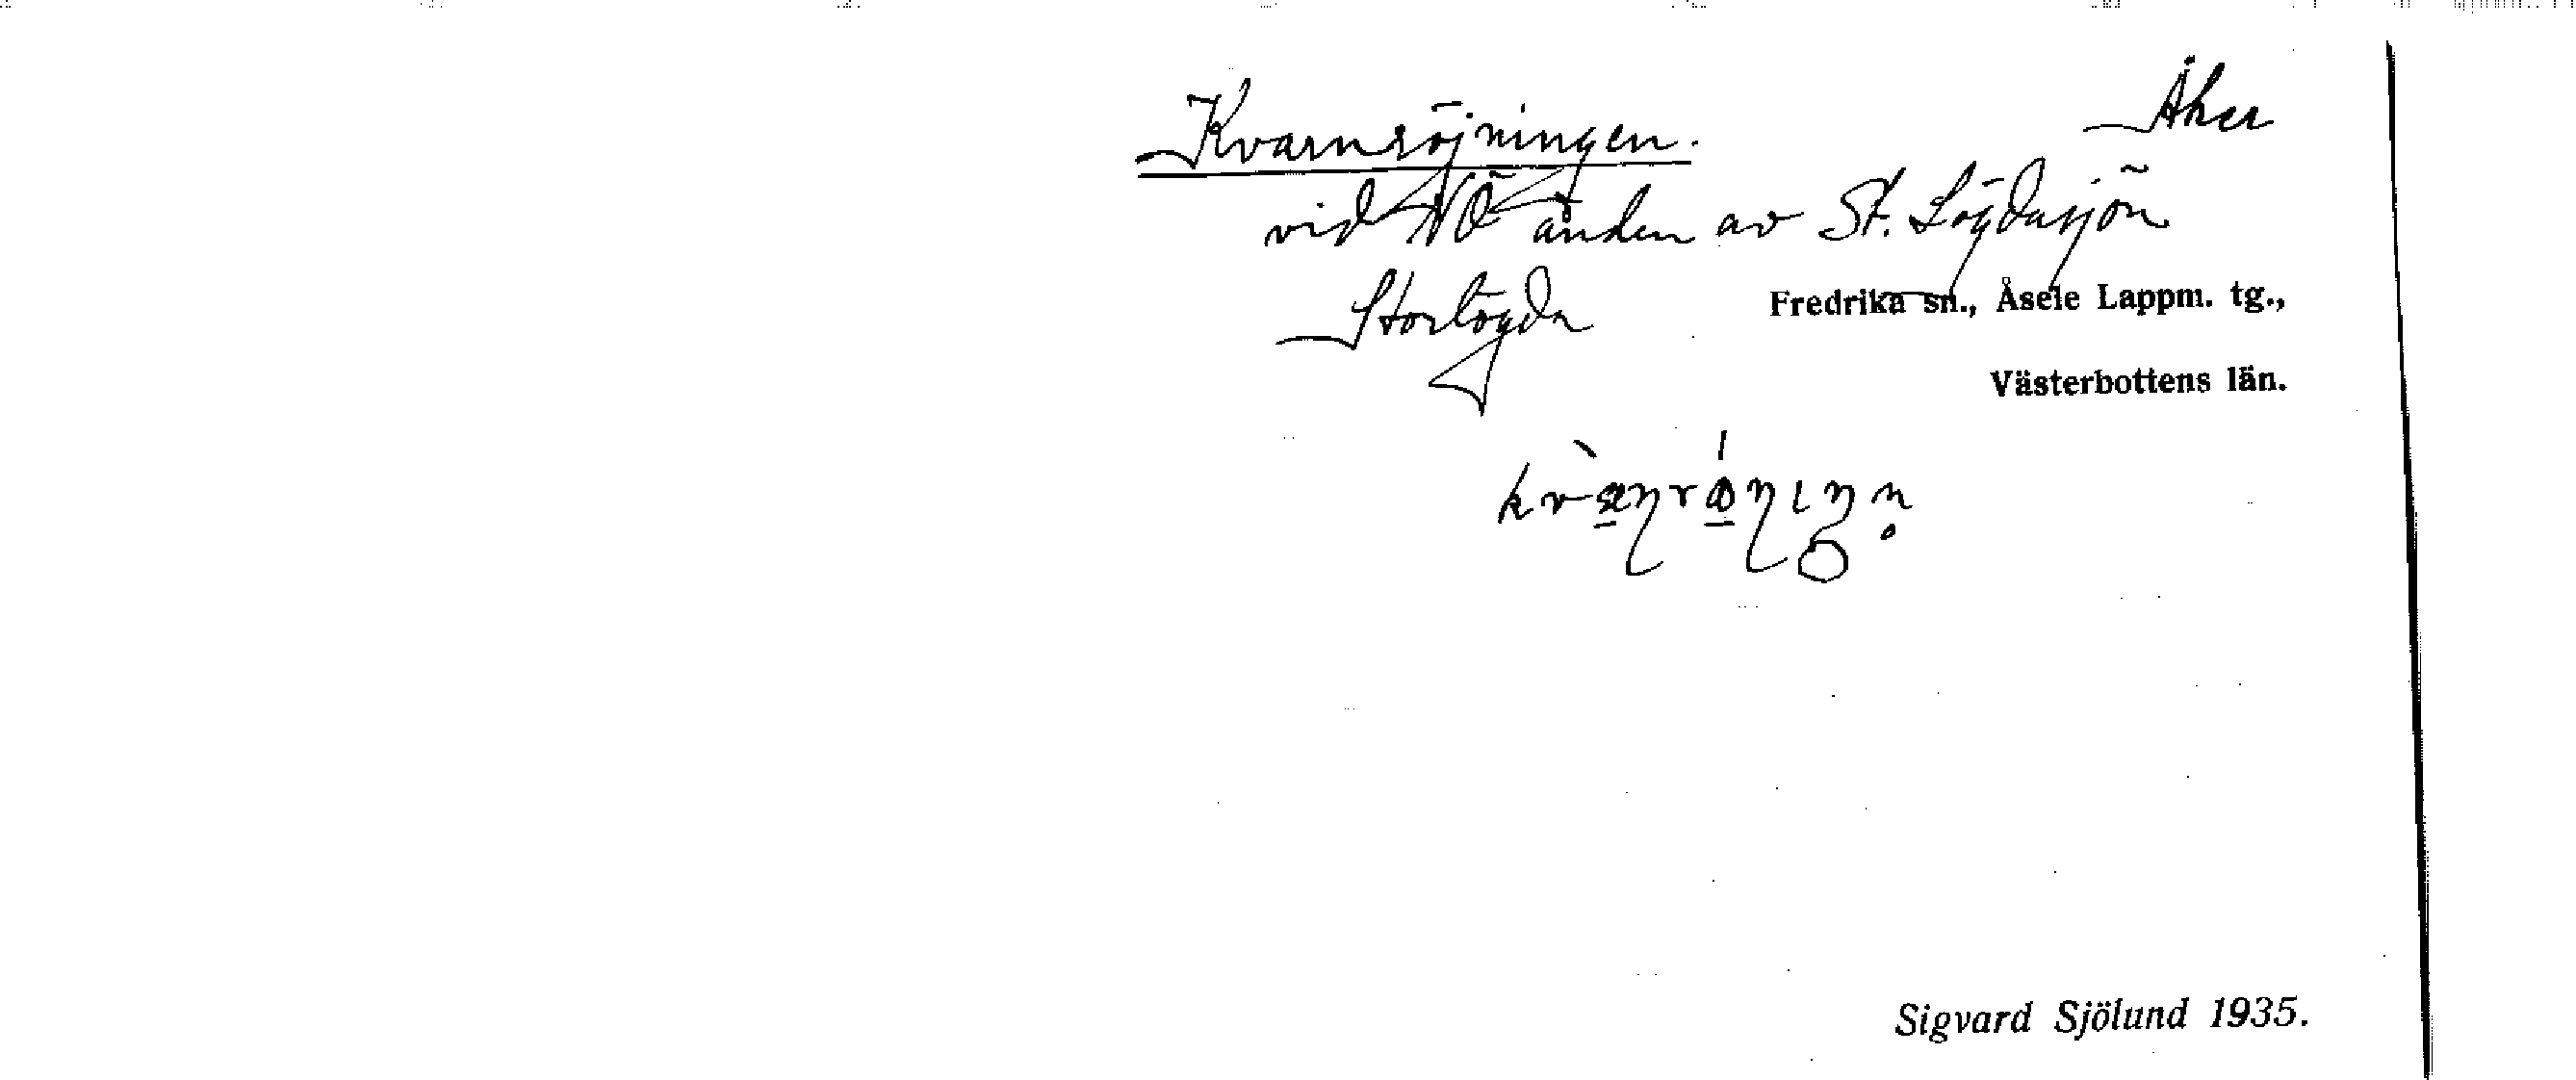 Kvarnröjningen. Åker
vid NÖ änden av St. Lögdasjön
Storlögda Fredrika sn., Åsele Lappm. tg.,
Västerbottens län.
Sigvard Sjölund 1935.